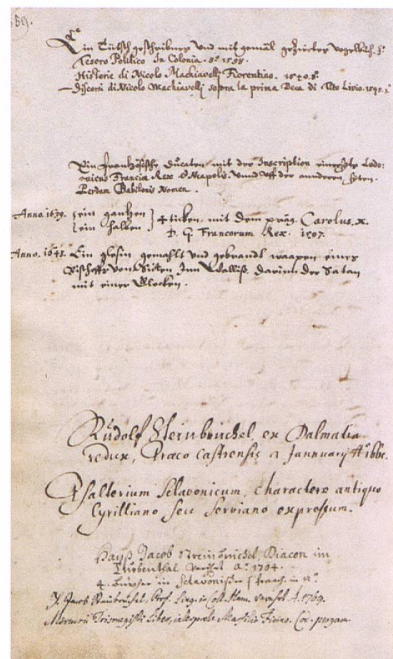 Ein Teütsch geschribner und mit gemäl gezierter vogelbüch. 8°
Tesoro Politico in Colonia. 8° 1598.
Historie di Nicolo Machiavelli Fiorentino. 1540. 8.
Discorsi di Nicolo Machiavelli sopra la prima Deca di Tito Livio. 8°
Ein Französische Ducaten mit der Inscription
Francia Rex Neapolis und uff der anderen seiten.
Perdam Babilonis Nomen.
Anno. ein gantzen
ein halben 4 dicken, mit dem präg Carolus. x.
D. G. Francorum Rex. 1597.
Anno. Ein gemahlt und gebrandt waapen eines
Bischoffs von Sitten Inn Walliß, darinn der Satan
mit einer Glocken.
Rudolf Steinbrüchel, ex Dalmatia
redux, Praco Castrensis a Jannuary
Psalterium Sclavonicum, charactere antiquo
Cyrilliano seu Serviano expressum.
Hanß Jacob Steinbrüchel Diacon im
Turbenthal A°. 1704.
4. in Sclavonischer Spraach in 8°
J. Jacob Steinbrüchel, Prof. Ling. in Coll. Hum. A. 1769.
Mercurii Trismegisti Liber, interprete Marsilio Ficino. Cod. pergam.